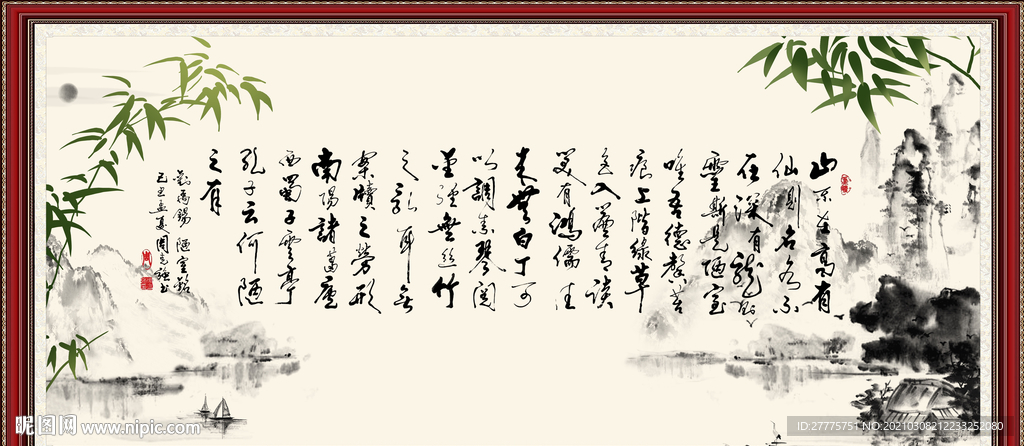 山不在高有
仙則名水不
在深有龍則
靈斯是陋室
唯吾德馨苔
痕上階綠草
色入簾青談
笑有鴻儒往
來無白丁可
以調素琴閱
金經無絲竹
之亂耳無
案牘之勞形
南陽諸葛廬
西蜀子雲亭
孔子云何陋
之有
劉禹錫 陋室銘
己丑孟夏周書
昵图网 www.nipic.com
ID:27775751 NO:20210308212233252080